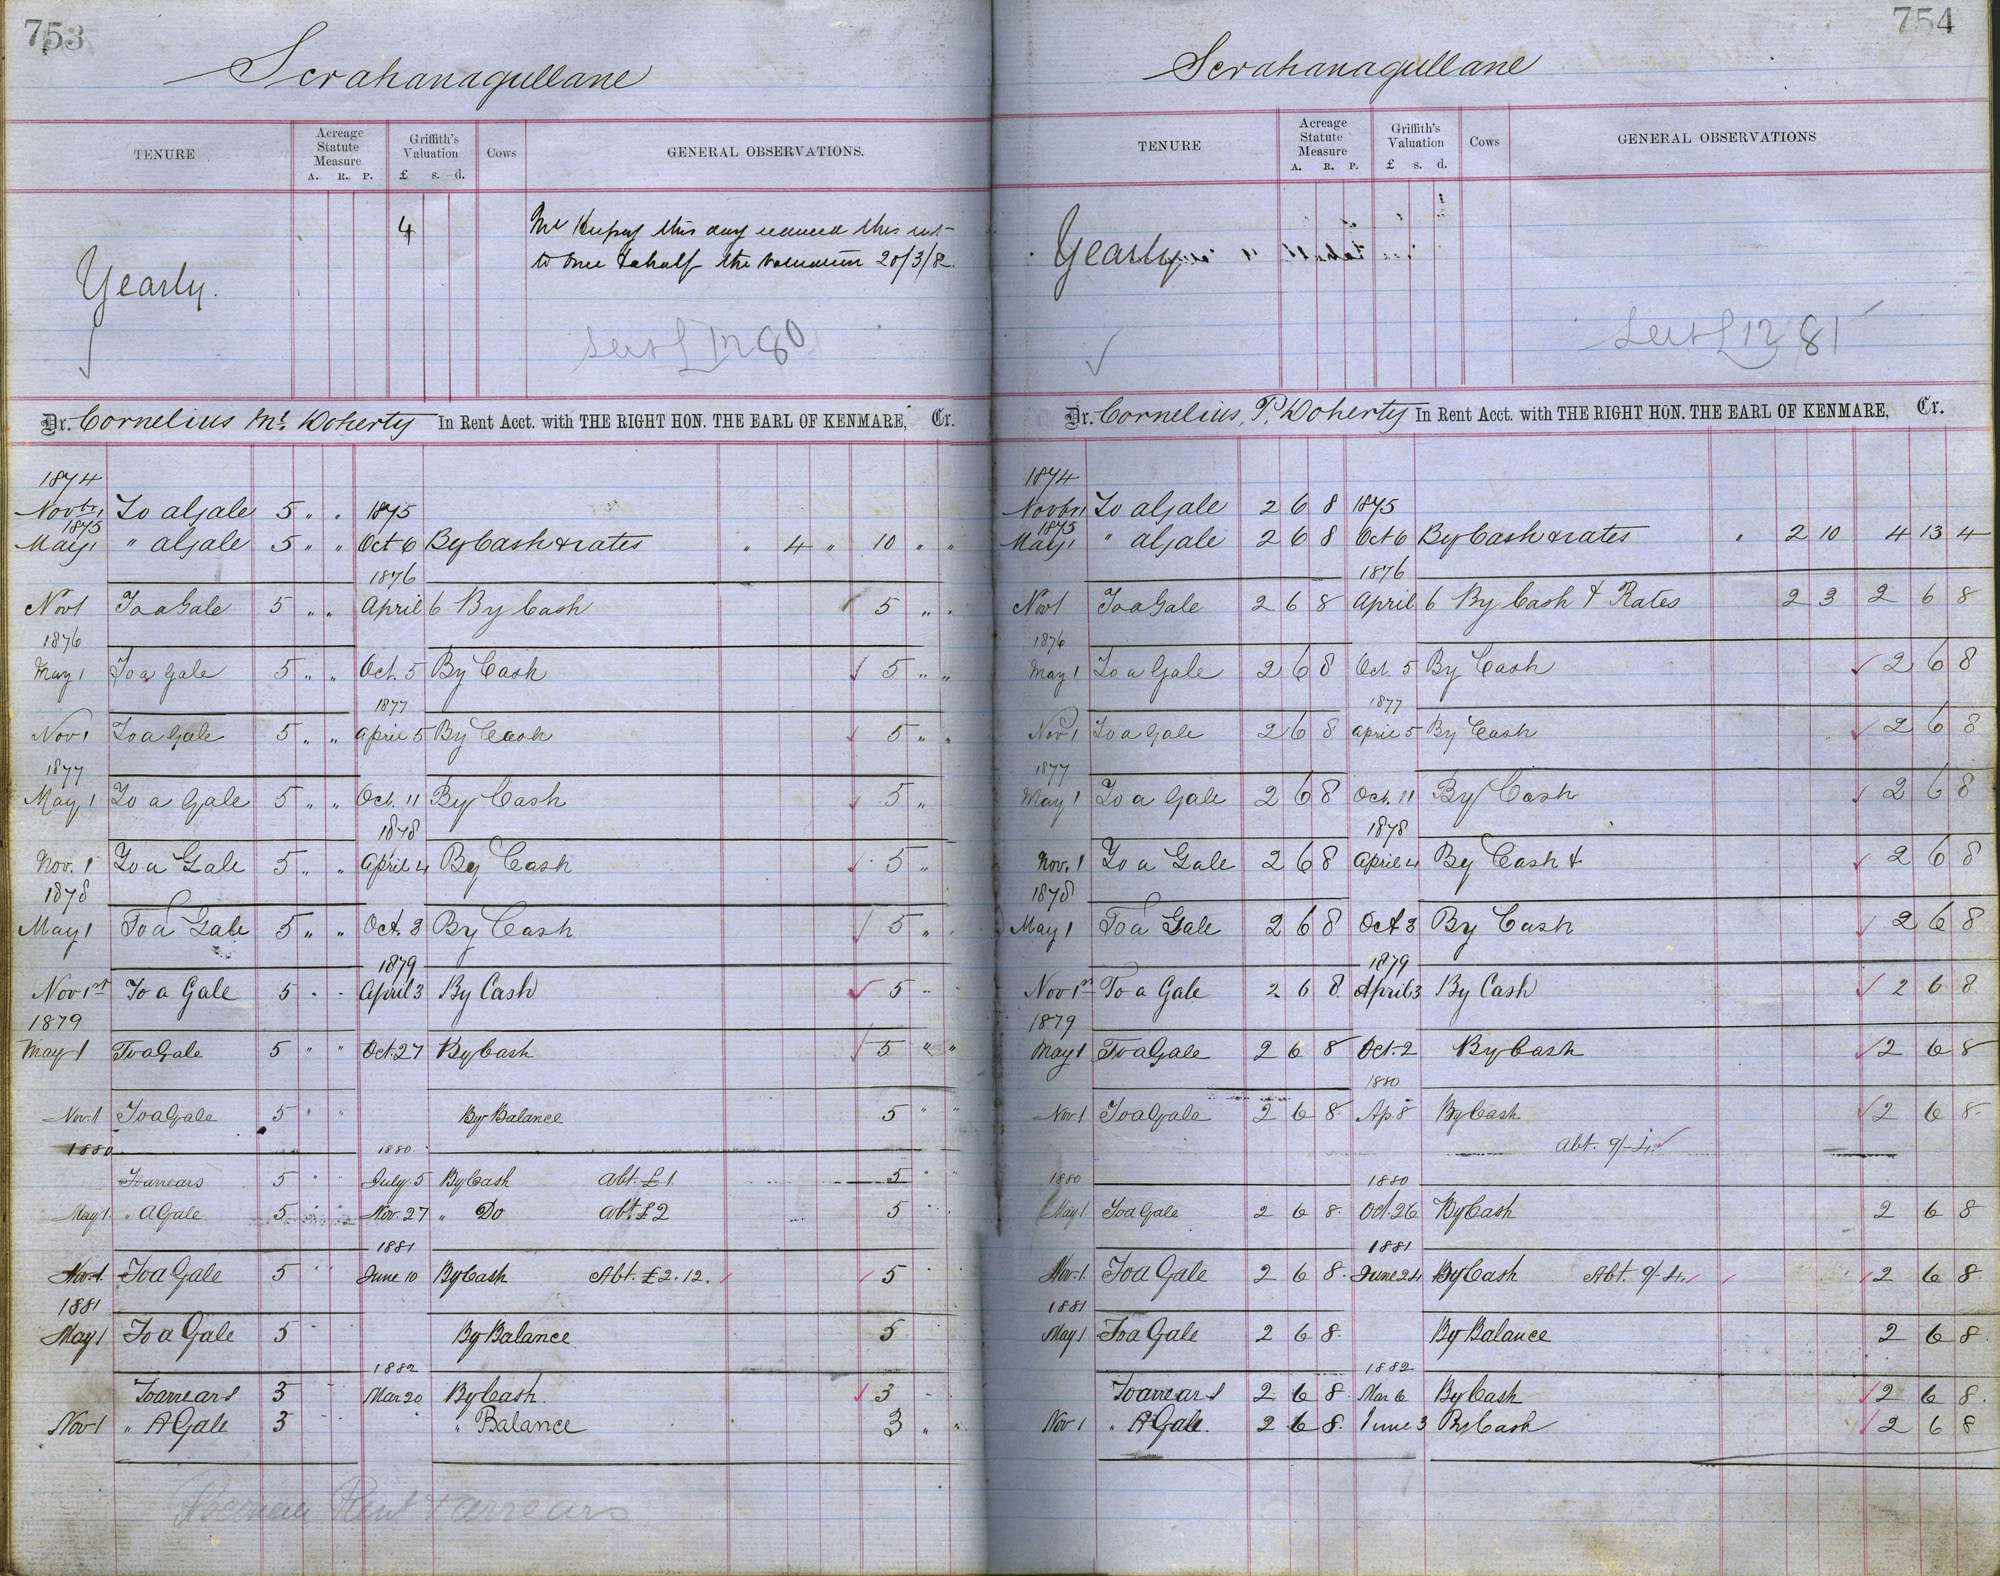 753
Scrahanagullane
TENURE
Acreage Statute Measure
A. R. P.
Griffith's Valuation
£ s. d.
Cows
GENERAL OBSERVATIONS.
Yearly.
4
Mr this day reduced this rent
to once & a half the valuation 20/3/82.
80
Dr. Cornelius Ml. Doherty In Rent Acct. with THE RIGHT HON. THE EARL OF KENMARE, Cr.
1874
Novbr 1 To a Gale 5 " " 1875
1875
May 1 " a Gale 5 " " Oct 6 By Cash & rates " 4 " 10 " "
1876
Nov 1 To a Gale 5 " " April 6 By Cash 5 " "
1876
May 1 To a Gale 5 " " Oct. 5 By Cash 5 " "
1877
Nov 1 To a Gale 5 " " April 5 By Cash 5 " "
1877
May 1 To a Gale 5 " " Oct. 11 By Cash 5 "
1878
Nov. 1 To a Gale 5 " " April 4 By Cash 5 "
1878
May 1 To a Gale 5 " " Oct. 3 By Cash 5 "
1879
Nov 1st To a Gale 5 " " April 3 By Cash 5 "
1879
May 1 To a Gale 5 " " Oct. 27 By Cash 5 " "
Nov. 1 To a Gale 5 " " By Balance 5 " "
1880 1880
To arrears 5 " July 5 By Cash Abt. £1. 5 " "
May 1 " A Gale 5 " " Nov. 27 " Do Abt £2 5 "
1881
Nov. 1 To a Gale 5 " June 10 By Cash Abt. £2.12. 5 "
1881
May 1 To a Gale 5 " By Balance 5
1882
To arrears 3 " Mar 20 By Cash 3 "
Nov 1 " A Gale 3 " " Balance 3 " "
Rent & arrears
754
Scrahanagullane
TENURE
Acreage Statute Measure
A. R. P.
Griffith's Valuation
£ s. d.
Cows
GENERAL OBSERVATIONS
Yearly
81
Dr. Cornelius, P. Doherty In Rent Acct. with THE RIGHT HON. THE EARL OF KENMARE, Cr.
1874
Novbr 1 To a Gale 2 6 8 1875
1875
May 1 " a Gale 2 6 8 Oct 6 By Cash & rates " 2 10 4 13 4
1876
Nov 1 To a Gale 2 6 8 April 6 By Cash & Rates 2 3 2 6 8
1876
May 1 To a Gale 2 6 8 Oct. 5 By Cash 2 6 8
1877
Nov 1 To a Gale 2 6 8 April 5 By Cash 2 6 8
1877
May 1 To a Gale 2 6 8 Oct. 11 By Cash 2 6 8
1878
Nov. 1 To a Gale 2 6 8 April 4 By Cash & 2 6 8
1878
May 1 To a Gale 2 6 8 Oct 3 By Cash 2 6 8
1879
Nov 1st To a Gale 2 6 8 April 3 By Cash 2 6 8
1879
May 1 To a Gale 2 6 8 Oct. 2 By Cash 2 6 8
1880
Nov. 1 To a Gale 2 6 8. Ap 8 By Cash 2 6 8.
Abt. 9/-4.
1880 1880
May 1 To a Gale 2 6 8. Oct. 26 By Cash 2 6 8
1881
Nov. 1. To a Gale 2 6 8. June 24 By Cash Abt. 9/4. 2 6 8.
1881
May 1 To a Gale 2 6 8. By Balance 2 6 8.
1882
To arrears 2 6 8. Mar 6 By Cash 2 6 8.
Nov 1 " A Gale. 2 6 8. June 3 By Cash 2 6 8